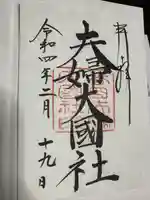 奉拝
夫婦大國社
令和四年二月
十九日